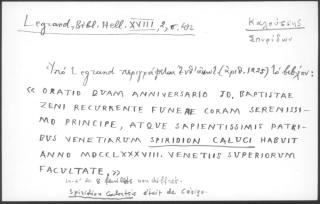 Legrand, Bibl. Hell. XVIII, 2, σ. 492
Καλούτσης
Σπυρίδων
Ὑπὸ Legrand περιγράφεται (ἀριθ. 1225) τὸ βιβλίον:
« ORATIO QUAM ANNIVERSARIO JO. BAPTISTAE
ZENI RECURRENTE FUNERE CORAM SERENISSI-
MO PRINCIPE, ATQUE SAPIENTISSIMIS PATRI-
BUS VENETIARUM SPIRIDION CALUCI HABUIT
ANNO MDCCLXXXVIII. VENETIIS SUPERIORUM
FACULTATE, »
in-4° de 8 feuillets non chiffrés.
Spiridion Caloutsis était de Cérigo.